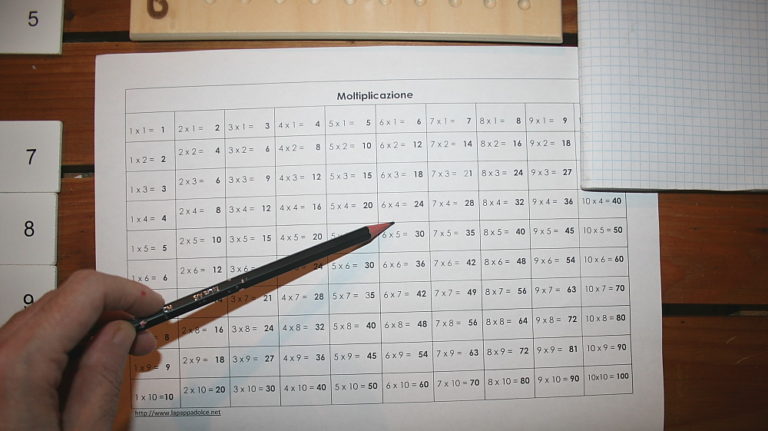 5
7
8
9
Moltiplicazione
1 x 1 = 1 2 x 1 = 2 3 x 1 = 3 4 x 1 = 4 5 x 1 = 5 6 x 1 = 6 7 x 1 = 7 8 x 1 = 8 9 x 1 = 9
1 x 2 = 2 2 x 2 = 4 3 x 2 = 6 4 x 2 = 8 5 x 2 = 10 6 x 2 = 12 7 x 2 = 14 8 x 2 = 16 9 x 2 = 18
1 x 3 = 3 2 x 3 = 6 3 x 3 = 9 4 x 3 = 12 5 x 3 = 15 6 x 3 = 18 7 x 3 = 21 8 x 3 = 24 9 x 3 = 27
1 x 4 = 4 2 x 4 = 8 3 x 4 = 12 4 x 4 = 16 5 x 4 = 20 6 x 4 = 24 7 x 4 = 28 8 x 4 = 32 9 x 4 = 36 10 x 4 = 40
1 x 5 = 5 2 x 5 = 10 3 x 5 = 15 4 x 5 = 20 6 x 5 = 30 7 x 5 = 35 8 x 5 = 40 9 x 5 = 45 10 x 5 = 50
1 x 6 = 6 2 x 6 = 12 3 x 6 24 5 x 6 = 30 6 x 6 = 36 7 x 6 = 42 8 x 6 = 48 9 x 6 = 54 10 x 6 = 60
3 x 7 = 21 4 x 7 = 28 5 x 7 = 35 6 x 7 = 42 7 x 7 = 49 8 x 7 = 56 9 x 7 = 63 10 x 7 = 70
8 2 x 8 = 16 3 x 8 = 24 4 x 8 = 32 5 x 8 = 40 6 x 8 = 48 7 x 8 = 56 8 x 8 = 64 9 x 8 = 72 10 x 8 = 80
1 x 9 = 9 2 x 9 = 18 3 x 9 = 27 4 x 9 = 36 5 x 9 = 45 6 x 9 = 54 7 x 9 = 63 8 x 9 = 72 9 x 9 = 81 10 x 9 = 90
1 x 10 =10 2 x 10 = 20 3 x 10 = 30 4 x 10 = 40 5 x 10 = 50 6 x 10 = 60 7 x 10 = 70 8 x 10 = 80 9 x 10 = 90 10x10 = 100
http://www.lapappadolce.net